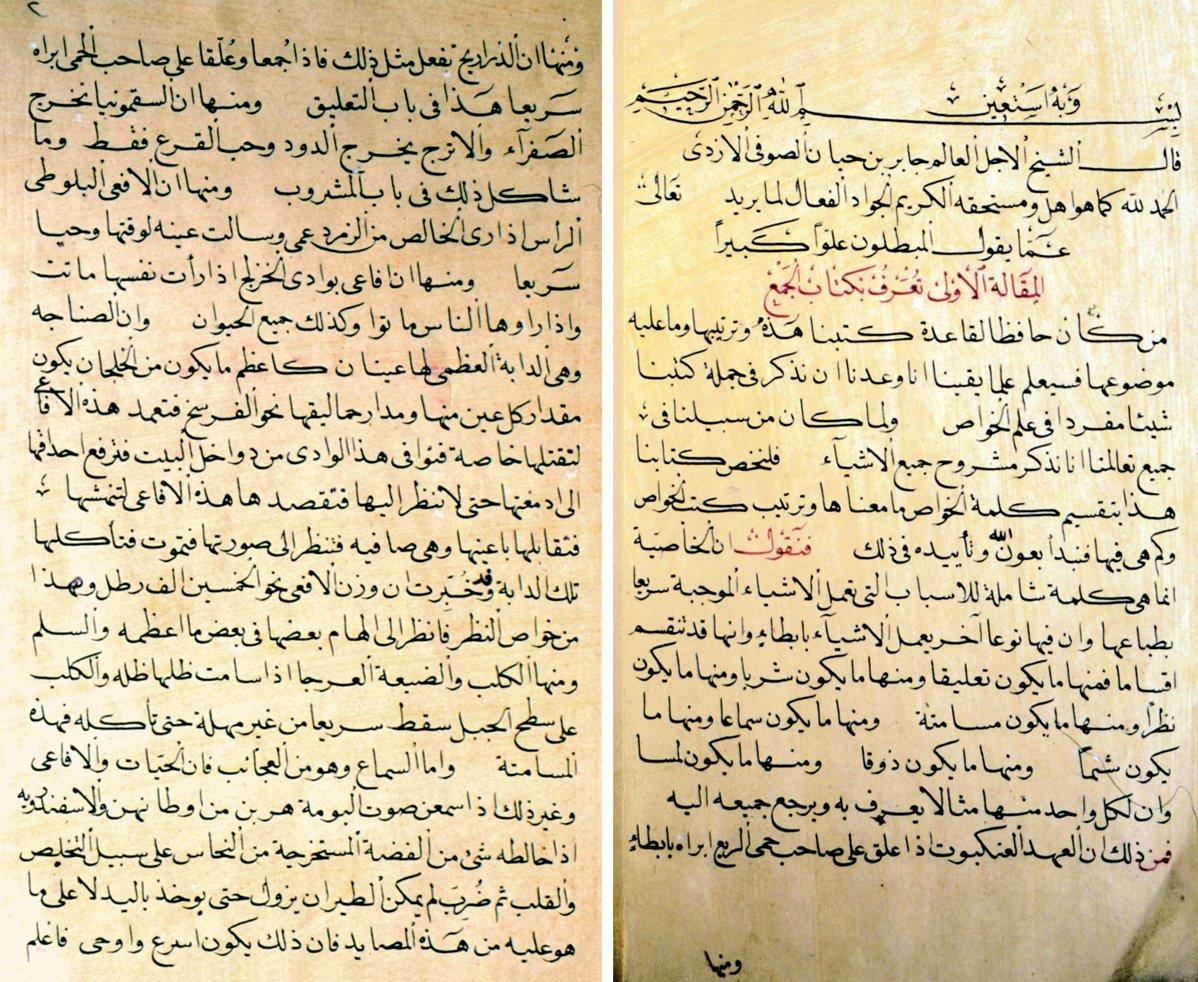 بسم الله الرحمن الرحيم وبه استعين
قال الشيخ الاجل العالم جابر بن حيان الصوفى الازدى
الحمد لله كما هو اهل ومستحقه الكريم الجواد الفعال لما يريد تعالى
عما يقول المبطلون علوا كبيرا
المقالة الاولى تعرف بكتاب الجمع
من كان حافظا لقاعدة كتبنا هذه وترتيبها وما عليه
موضوعها فسيعلم علما يقينا انا وعدنا ان نذكر فى جملة كتبنا
شيئا مفردا فى علم الخواص ولما كان من سبيلنا فى
جميع تعالمنا انا نذكر مشروح جميع الاشياء فلنخص كتابنا
هذا بتقسيم كلمة الخواص ما معناها وترتيب كتب الخواص
وكم هى فيها فنبدا بعون الله وتأييده فى ذلك فنقول ان الخاصية
انما هى كلمة شاملة للاسباب التى تعمل الاشياء الموجبة سريعا
بطباعها وان فيها نوعا آخر يعمل الاشياء بابطاء وانها قد تنقسم
اقساما فمنها ما يكون تعليقا ومنها ما يكون شربا ومنها ما يكون
نظرا ومنها ما يكون مسامتة ومنها ما يكون سماعا ومنها ما
يكون شما ومنها ما يكون ذوقا ومنها ما يكون لمسا
وان لكل واحد منها مثالا يعرف به ويرجع جميعه اليه
فمن ذلك ان العهد العنكبوت اذا علق على صاحب حمى الربع ابراه بابطاء
ومنها
٢
ومنها ان الذراريح تفعل مثل ذلك فاذا جمعا وعلقا على صاحب الحمى ابراه
سريعا هذا فى باب التعليق ومنها ان السقمونيا تخرج
الصفرآء والاترج يخرج الدود وحب القرع فقط وما
شاكل ذلك فى باب المشروب ومنها ان الافعى البلوطى
الراس اذا رى الخالص من الزمرد عمى وسالت عينه لوقتها وحيا
سريعا ومنها ان افاعى بوادى الخزلج اذا رأت نفسها ماتت
واذا راوها الناس ماتوا وكذلك جميع الحيوان وان الصناجه
وهى الدابة العظمى لها عينان كاعظم ما يكون من الخلجان يكون
مقدار كل عين منها ومدار حماليقها نحو الفرسخ فتعمد هذه الافاعى
لتقتلها خاصة فتوافى هذا الوادى من دواخل البيت فترفع احداقها
الى ادمغتها حتى لا تنظر اليها فتقصدها هذه الافاعى لتنهشها
فتقابلها باعينها وهى صافيه فتنظر الى صورتها فتموت فتأكلها
تلك الدابة وقد خبرت ان وزن الافعى نحو الخمسين الف رطل وهذا
من خواص النظر فانظر الى الهام بعضها فى بعض ما اعظمه والسلم
ومنها الكلب والضبعة العرجا اذا سامت ظلها ظله والكلب
على سطح الجبل سقط سريعا من غير مهلة حتى تأكله فهذه
المسامتة واما السماع وهو من العجائب فان الحيات والافاعى
وغير ذلك اذا سمعن صوت البومة هربن من اوطانهن والاسفندرويه
اذا خالطه شئ من الفضة المستخرجة من النحاس على سبيل التخليص
والقلب ثم ضرب لم يمكن الطير ان يزول حتى يوخذ باليد لا على ما
هو عليه من هذه المصايد فان ذلك يكون اسرع واوحى فاعلم